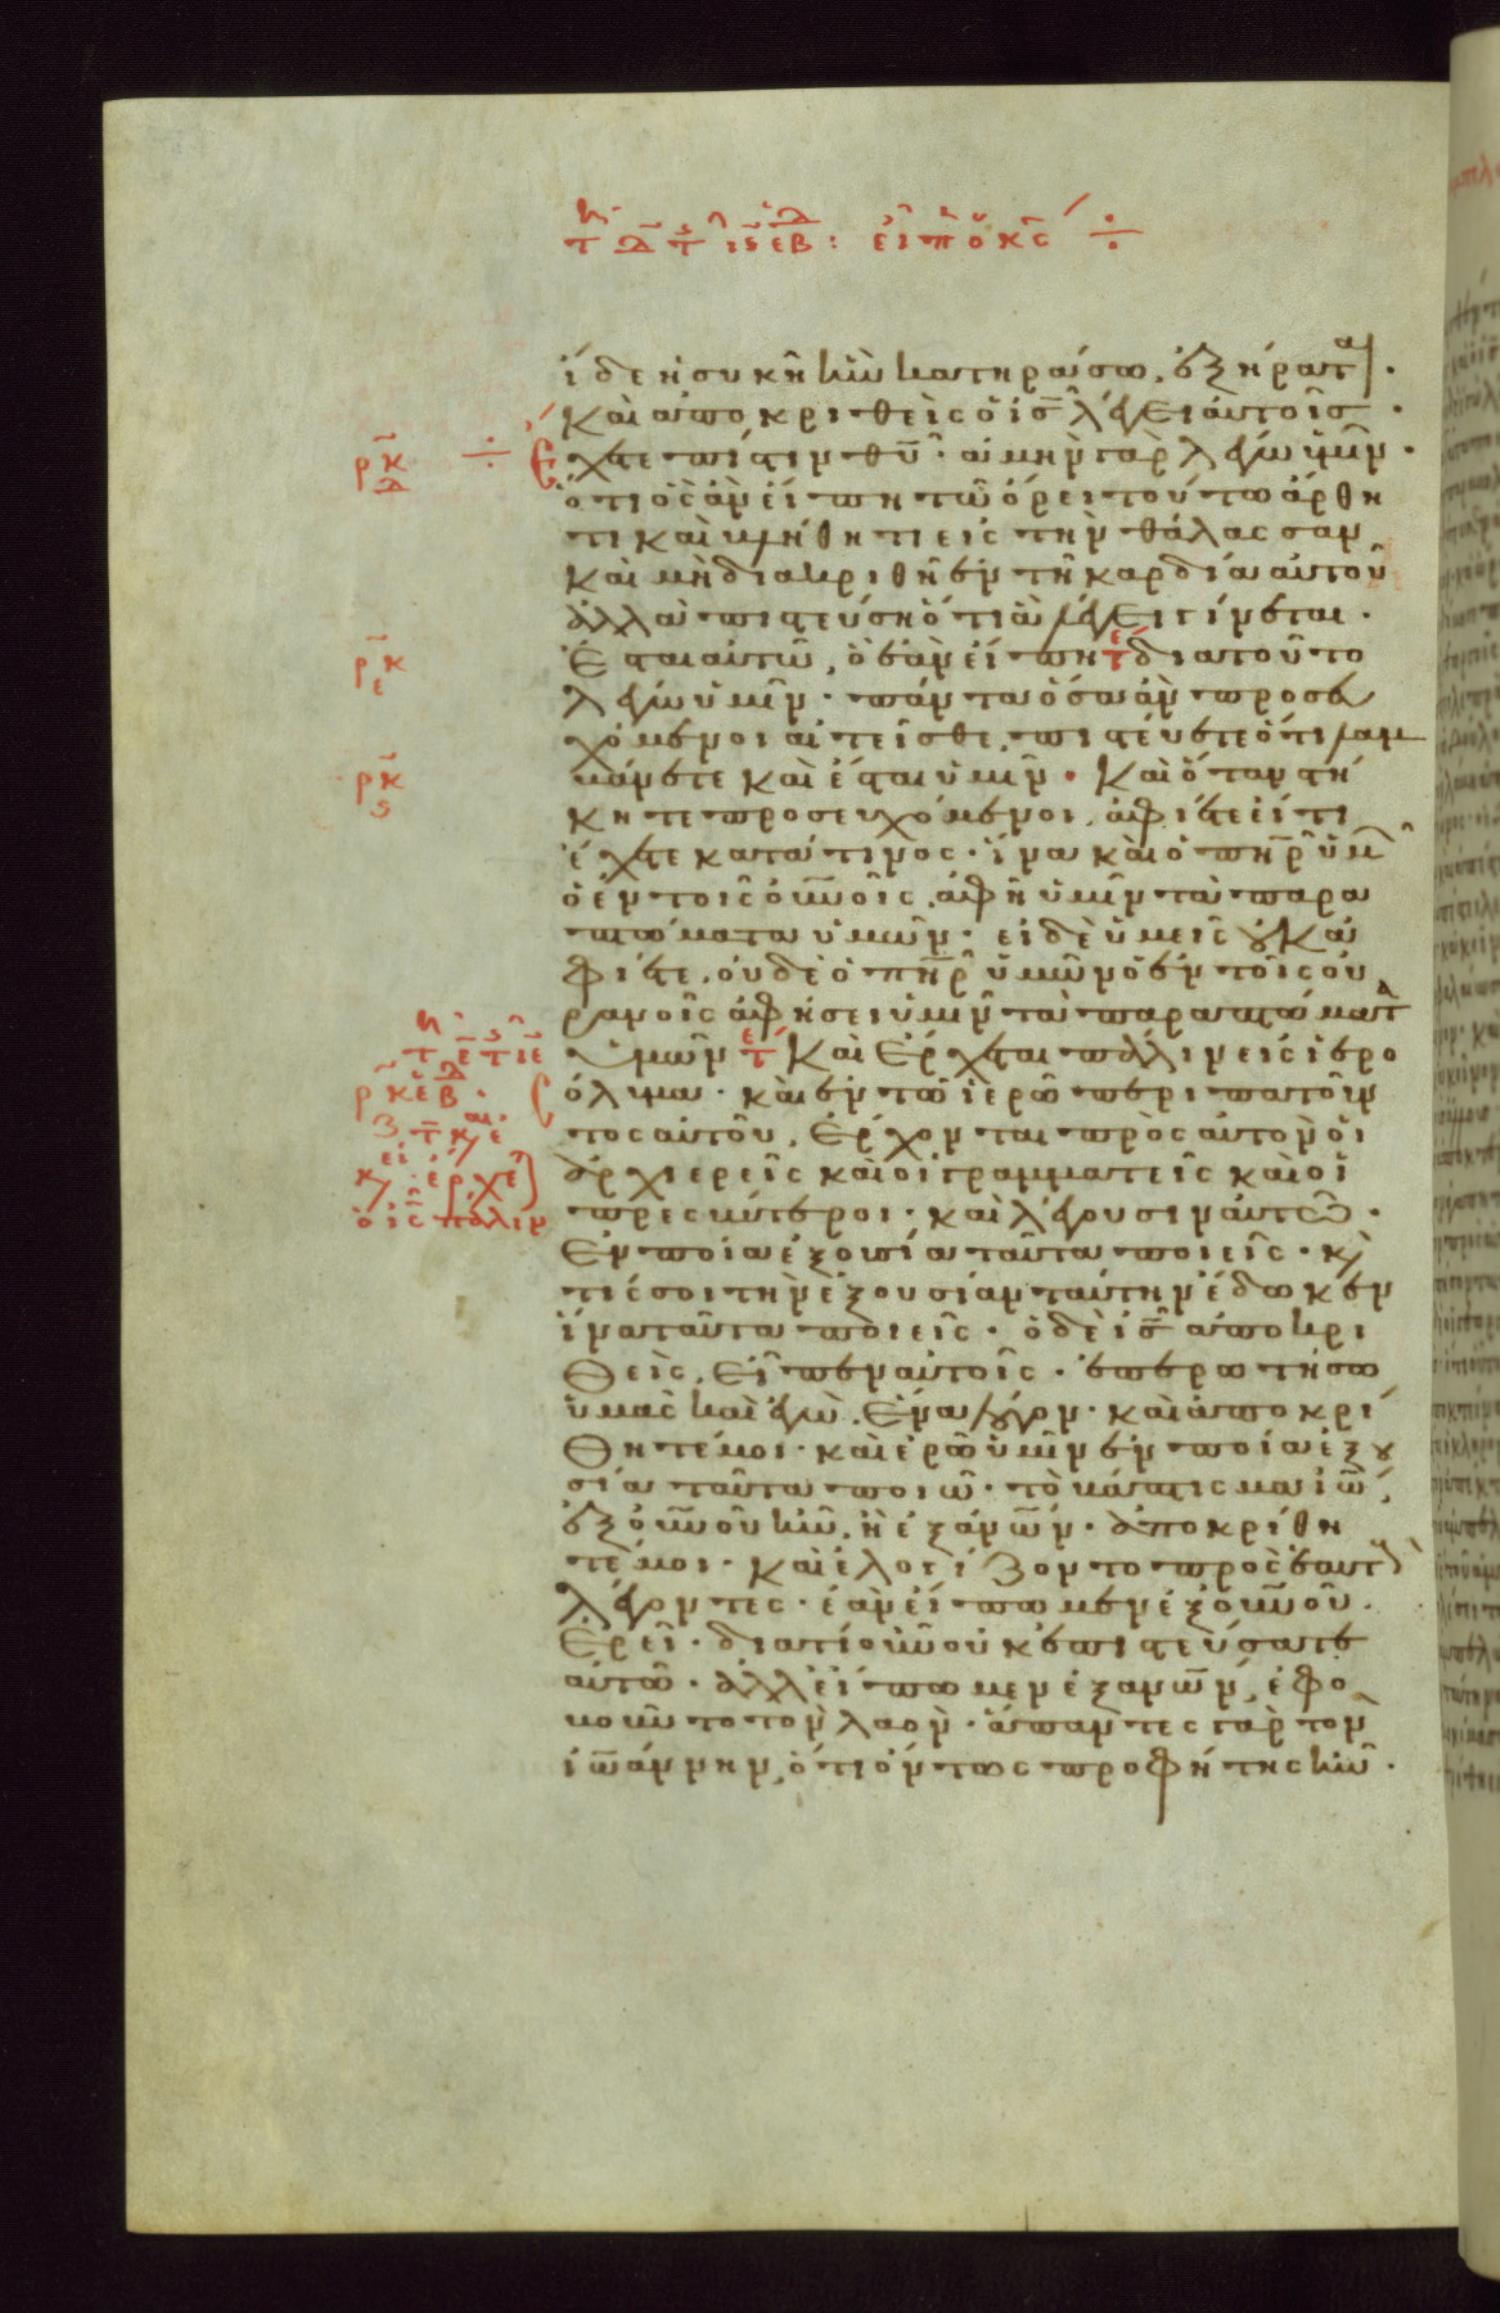 τῆ δ τῆς ιϛ εβδ : εἶπεν ὁ κς ÷
ἴδε ἡ συκῆ ἣν κατηράσω, ἐξήρανται.
Καὶ ἀποκριθεὶς ὁ ις λέγει αὐτοῖς.
ρκδ ÷ Ἔχετε πίστιν θυ. ἀμὴν γὰρ λέγω ὑμῖν.
ὅτι ὃς ἂν εἴπη τῶ ὄρει τούτω ἄρθη
τι καὶ βλήθητι εἰς τὴν θάλασσαν
καὶ μὴ διακριθῆ ἐν τῆ καρδία αὐτοῦ
ἀλλὰ πιστεύση ὅτι ἃ λέγει γίνεται.
ρκε Ἔσται αὐτῶ, ὃ ἐὰν εἴπη τε διατοῦτο
λέγω ὑμῖν. πάντα ὅσα ἂν προσευ
χόμενοι αἰτεῖσθε, πιστεύετε ὅτι λαμ
ρκϛ βάνετε καὶ ἔσται ὑμῖν. Καὶ ὅταν στή
κητε προσευχόμενοι, ἀφίετε εἴ τι
ἔχετε κατά τινος. ἵνα καὶ ὁ πηρ ὑμῶν
ὁ ἐν τοῖς ουνοις, ἀφῆ ὑμῖν τὰ παρα
πτώματα ὑμῶν. εἰ δὲ ὑμεῖς οὐκ ἀ
φίετε, οὐδὲ ὁ πηρ ὑμῶν ὁ ἐν τοῖς οὐ
ρανοῖς ἀφήσει ὑμῖν τὰ παραπτώματα
ὑμῶν τε Καὶ Ἔρχεται πάλιν εἰς ἱερο
όλυμα. καὶ ἐν τῶ ἱερῶ περιπατοῦν
τος αὐτοῦ, Ἔρχονται πρὸς αὐτὸν οἱ
ἀρχιερεῖς καὶ οἱ γραμματεῖς καὶ οἱ
πρεσβύτεροι. καὶ λέγουσιν αὐτῶ.
Ἐν ποία ἐξουσία ταῦτα ποιεῖς. καὶ
τίς σοι τὴν ἐξουσίαν ταύτην ἔδωκεν
ἵνα ταῦτα ποιεῖς. ὁ δὲ ις ἀποκρι
θεὶς, εἶπεν αὐτοῖς. ἐπερωτήσω
ὑμᾶς καὶ ἐγὼ, Ἕνα λόγον. καὶ ἀποκρί
θητέ μοι. καὶ ἐρῶ ὑμῖν ἐν ποία ἐξου
σία ταῦτα ποιῶ. τὸ βάπτισμα ἰω,
ἐξ ουνου ἦν, ἢ ἐξ ανων. ἀποκρίθη
τέ μοι. καὶ ἐλογίζοντο πρὸς ἑαυτοὺς
λέγοντες. ἐὰν εἴπωμεν ἐξ ουνου.
Ἐρεῖ. διατί οὖν οὐκ ἐπιστεύσατε
αὐτῶ. ἀλλ' εἴπωμεν ἐξ ανων, ἐφο
βοῦντο τὸν λαόν. ἅπαντες γὰρ τὸν
ἰωάννην, ὅτι ὄντως προφήτης ἦν.